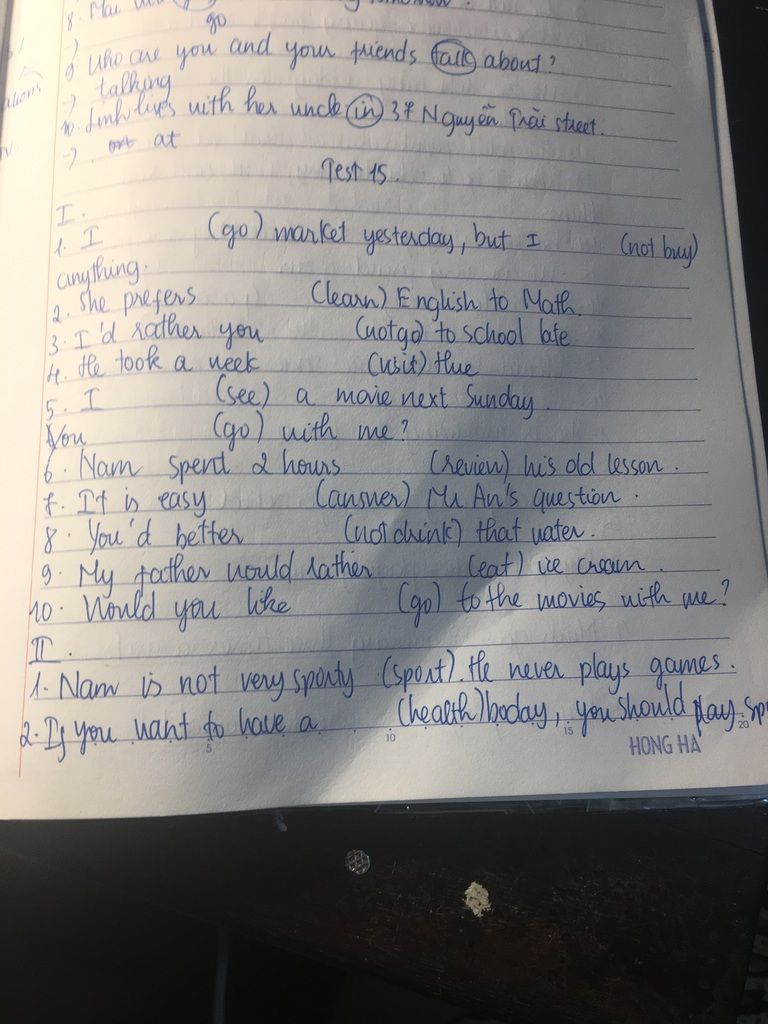 8. Mai
go
9. Who are you and your friends talk about?
-) talking
10. Linh lives with her uncle in 37 Nguyễn Trãi street.
-). at
Test 15.
I.
1. I (go) market yesterday, but I (not buy)
anything.
2. She prefers (learn) English to Math.
3. I'd rather you (not go) to school late
4. He took a week (visit) Hue
5. I (see) a movie next Sunday.
You (go) with me?
6. Nam spent 2 hours (review) his old lesson.
7. It is easy (answer) Mr An's question.
8. You'd better (not drink) that water.
9. My father would rather (eat) ice cream.
10. Would you like (go) to the movies with me?
II.
1. Nam is not very sporty (sport). He never plays games.
2. If you want to have a (health) boday, you should play
5 10 15 20
HONG HA